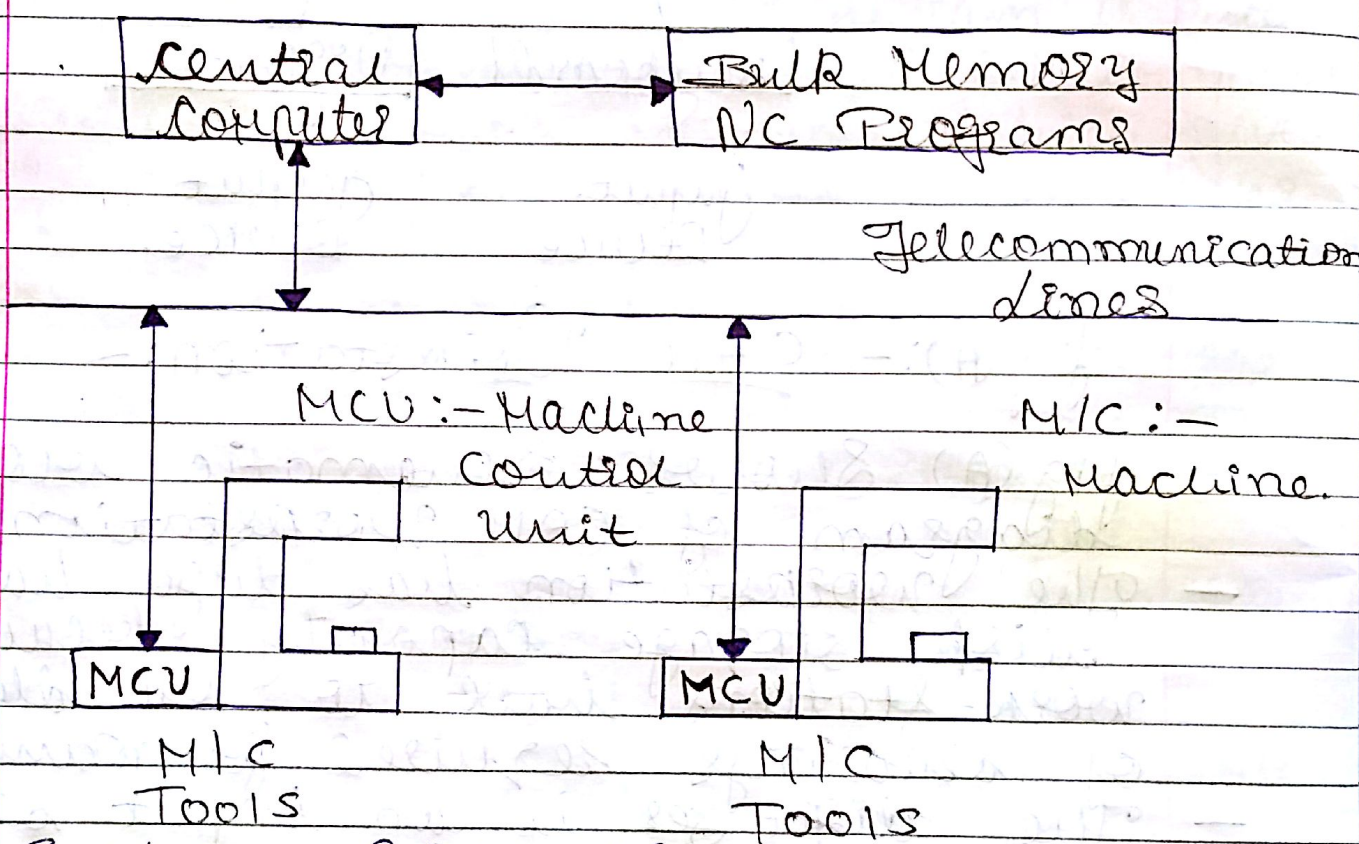 Central
Computer
Bulk Memory
NC Programs
Telecommunication
Lines
MCU :- Machine
Control
Unit
M/C :-
Machine.
MCU
MCU
M/C
TOOLS
M/C
TOOLS